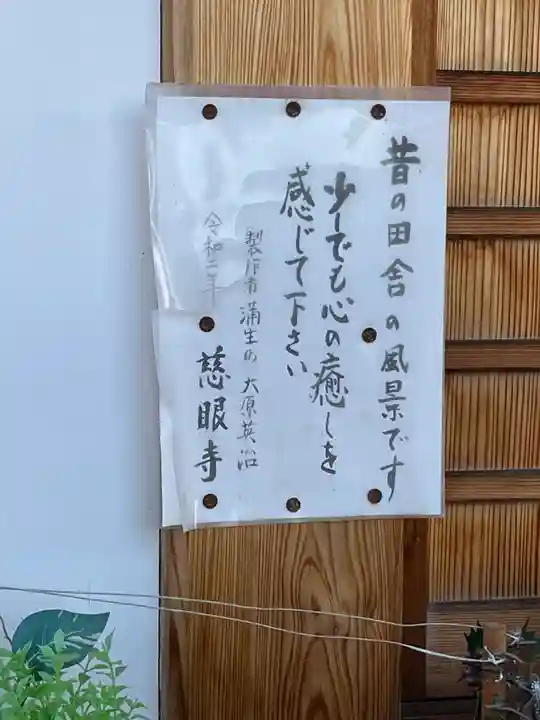 昔の田舎の風景です
少しでも心の癒しを
感じて下さい
製作者 蒲生の 大原英治
令和二年
慈眼寺